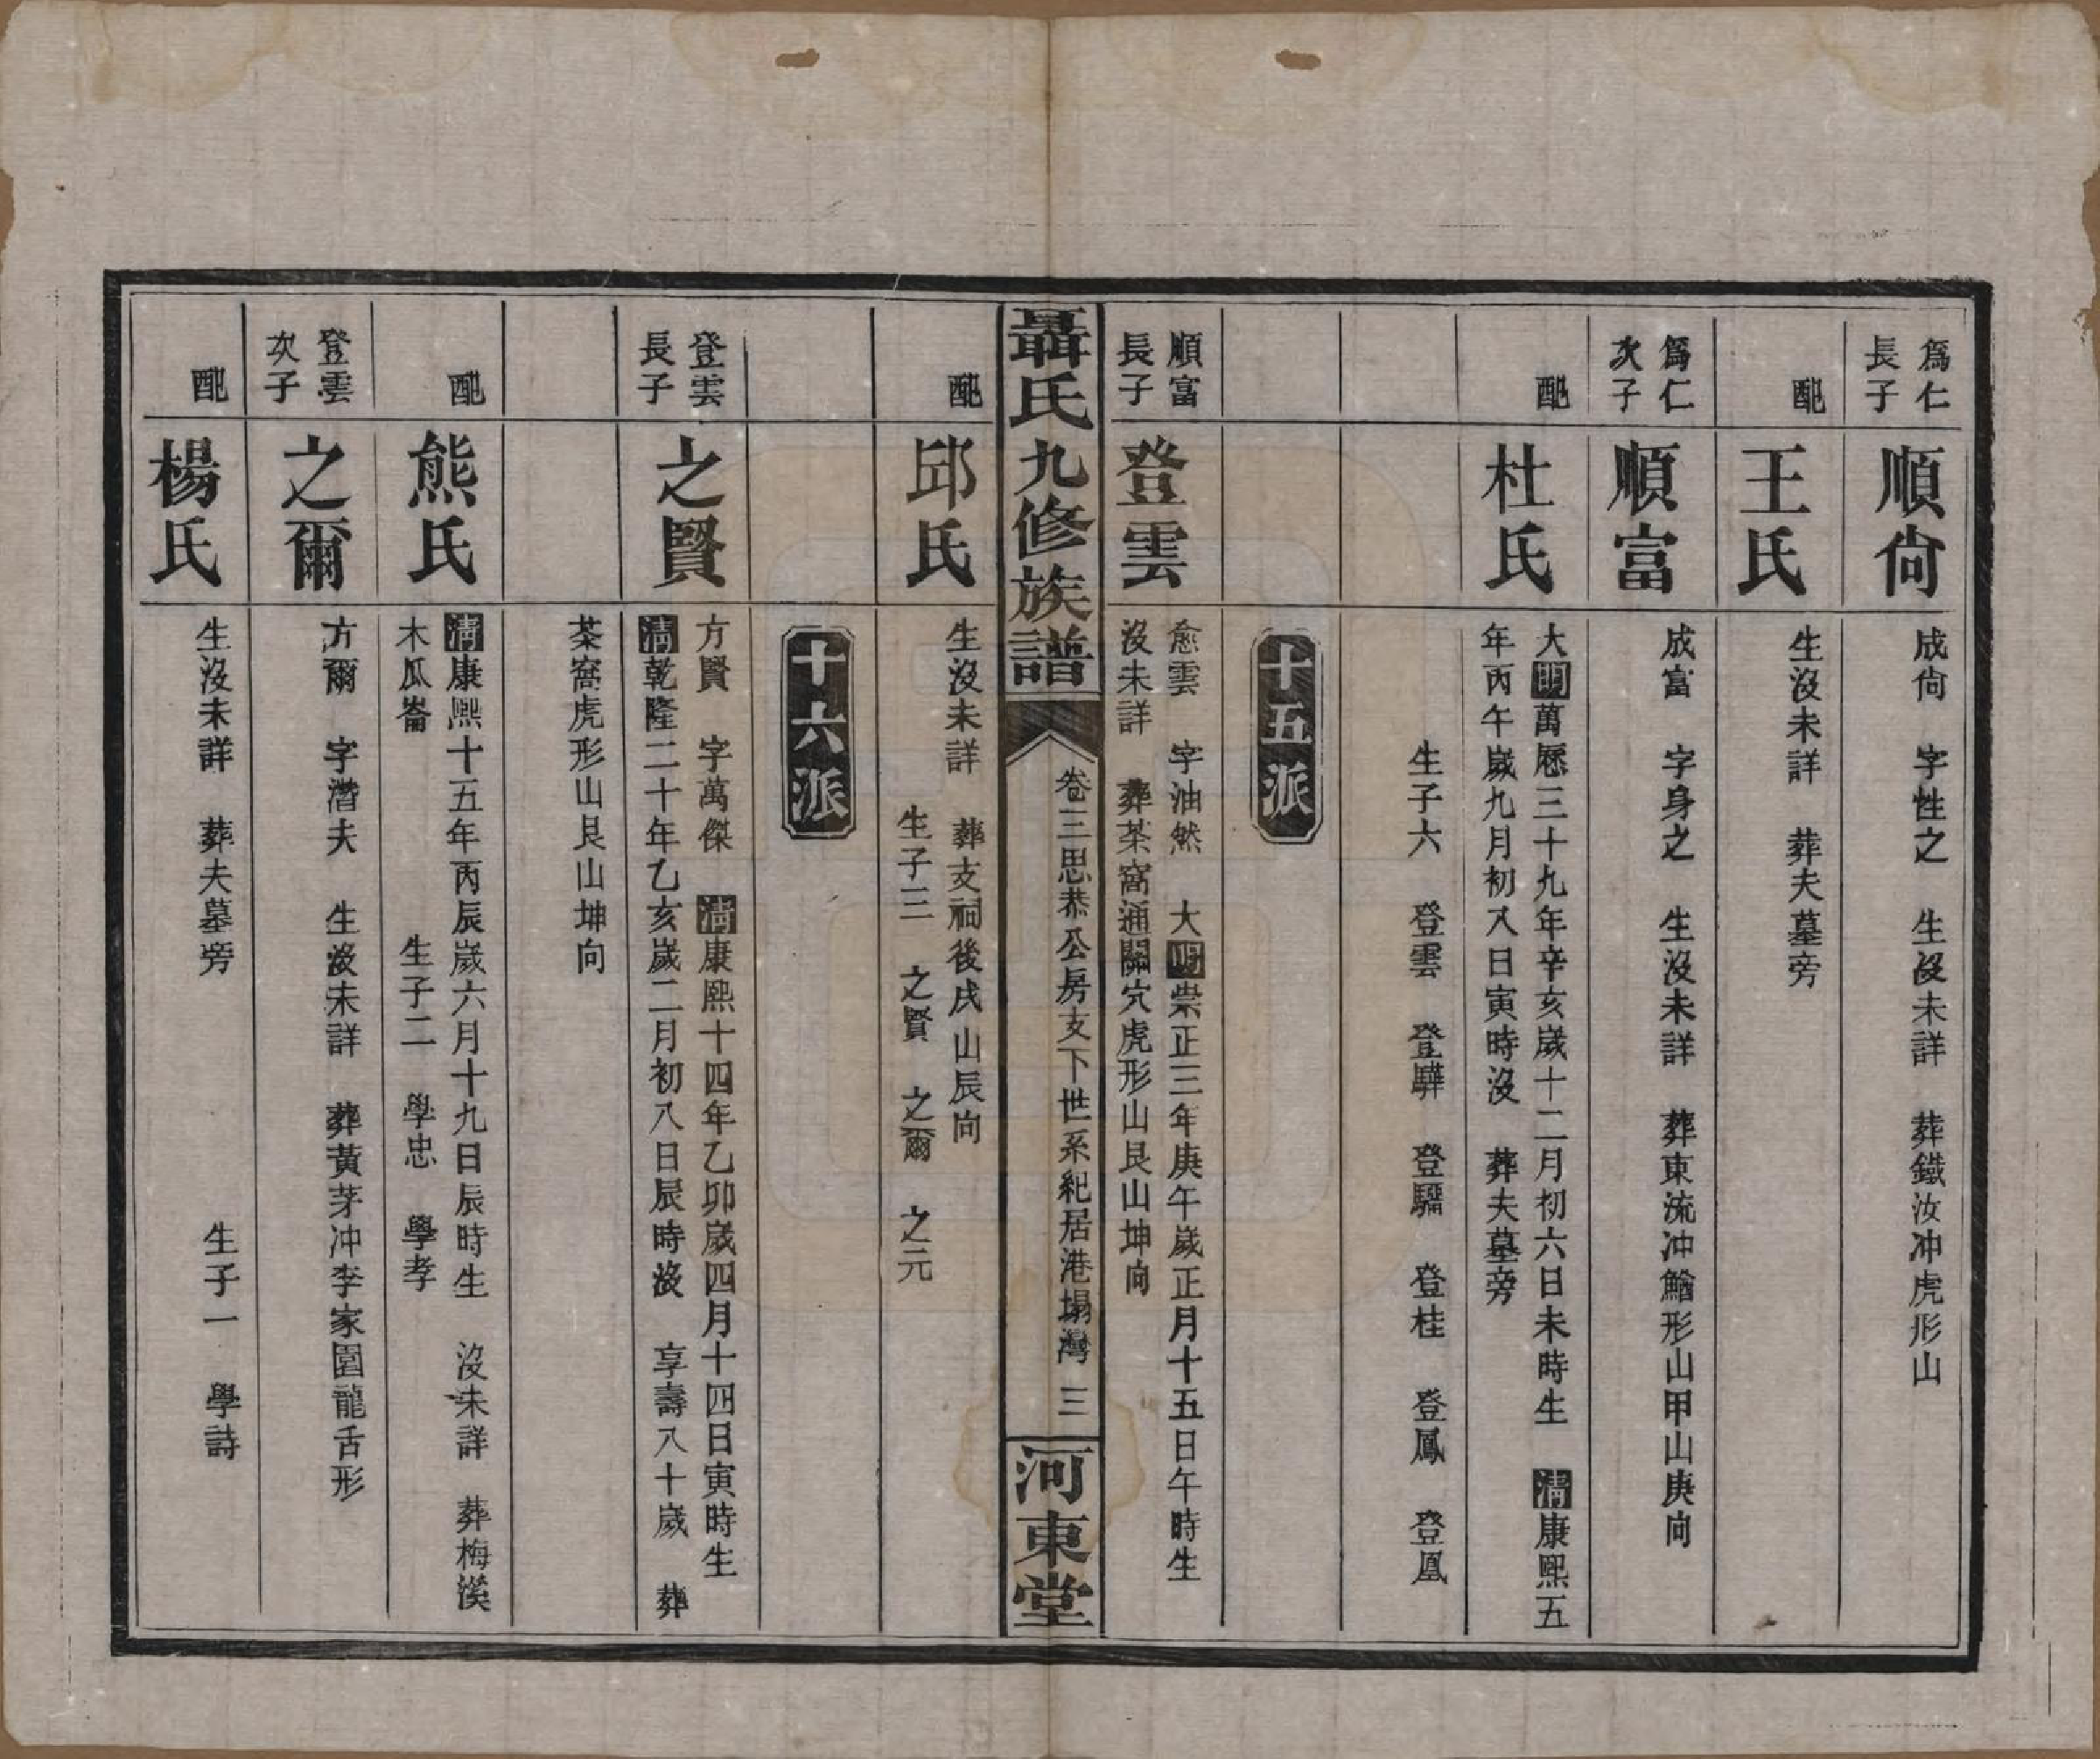 爲仁
長子
順尙
成尙　字性之　生沒未詳　葬鐵汝冲虎形山
配
王氏
生沒未詳　葬夫墓旁
爲仁
次子
順富
成富　字身之　生沒未詳　葬東流冲鰌形山甲山庚向
配
杜氏
大明萬厯三十九年辛亥歲十二月初六日未時生　淸康熙五
年丙午歲九月初八日寅時沒　葬夫墓旁
生子六　登雲　登驊　登驑　登桂　登鳳　登凰
十五派
順富
長子
登雲
愈雲　字油然　大明崇正三年庚午歲正月十五日午時生
沒未詳　葬茶窩通關穴虎形山艮山坤向
聶氏九修族譜
卷三思恭公房支下世系紀居港塌灣　三
河東堂
配
邱氏
生沒未詳　葬支祠後戌山辰向
生子三　之賢　之爾　之元
十六派
登雲
長子
之賢
方賢　字萬傑　淸康熙十四年乙卯歲四月十四日寅時生
淸乾隆二十年乙亥歲二月初八日辰時沒　享壽八十歲　葬
茶窩虎形山艮山坤向
配
熊氏
淸康熙十五年丙辰歲六月十九日辰時生　沒未詳　葬梅溪
木瓜崙
生子二　學忠　學孝
登雲
次子
之爾
方爾　字潛夫　生沒未詳　葬黃茅冲李家園龍舌形
配
楊氏
生沒未詳　葬夫墓旁
生子一　學詩